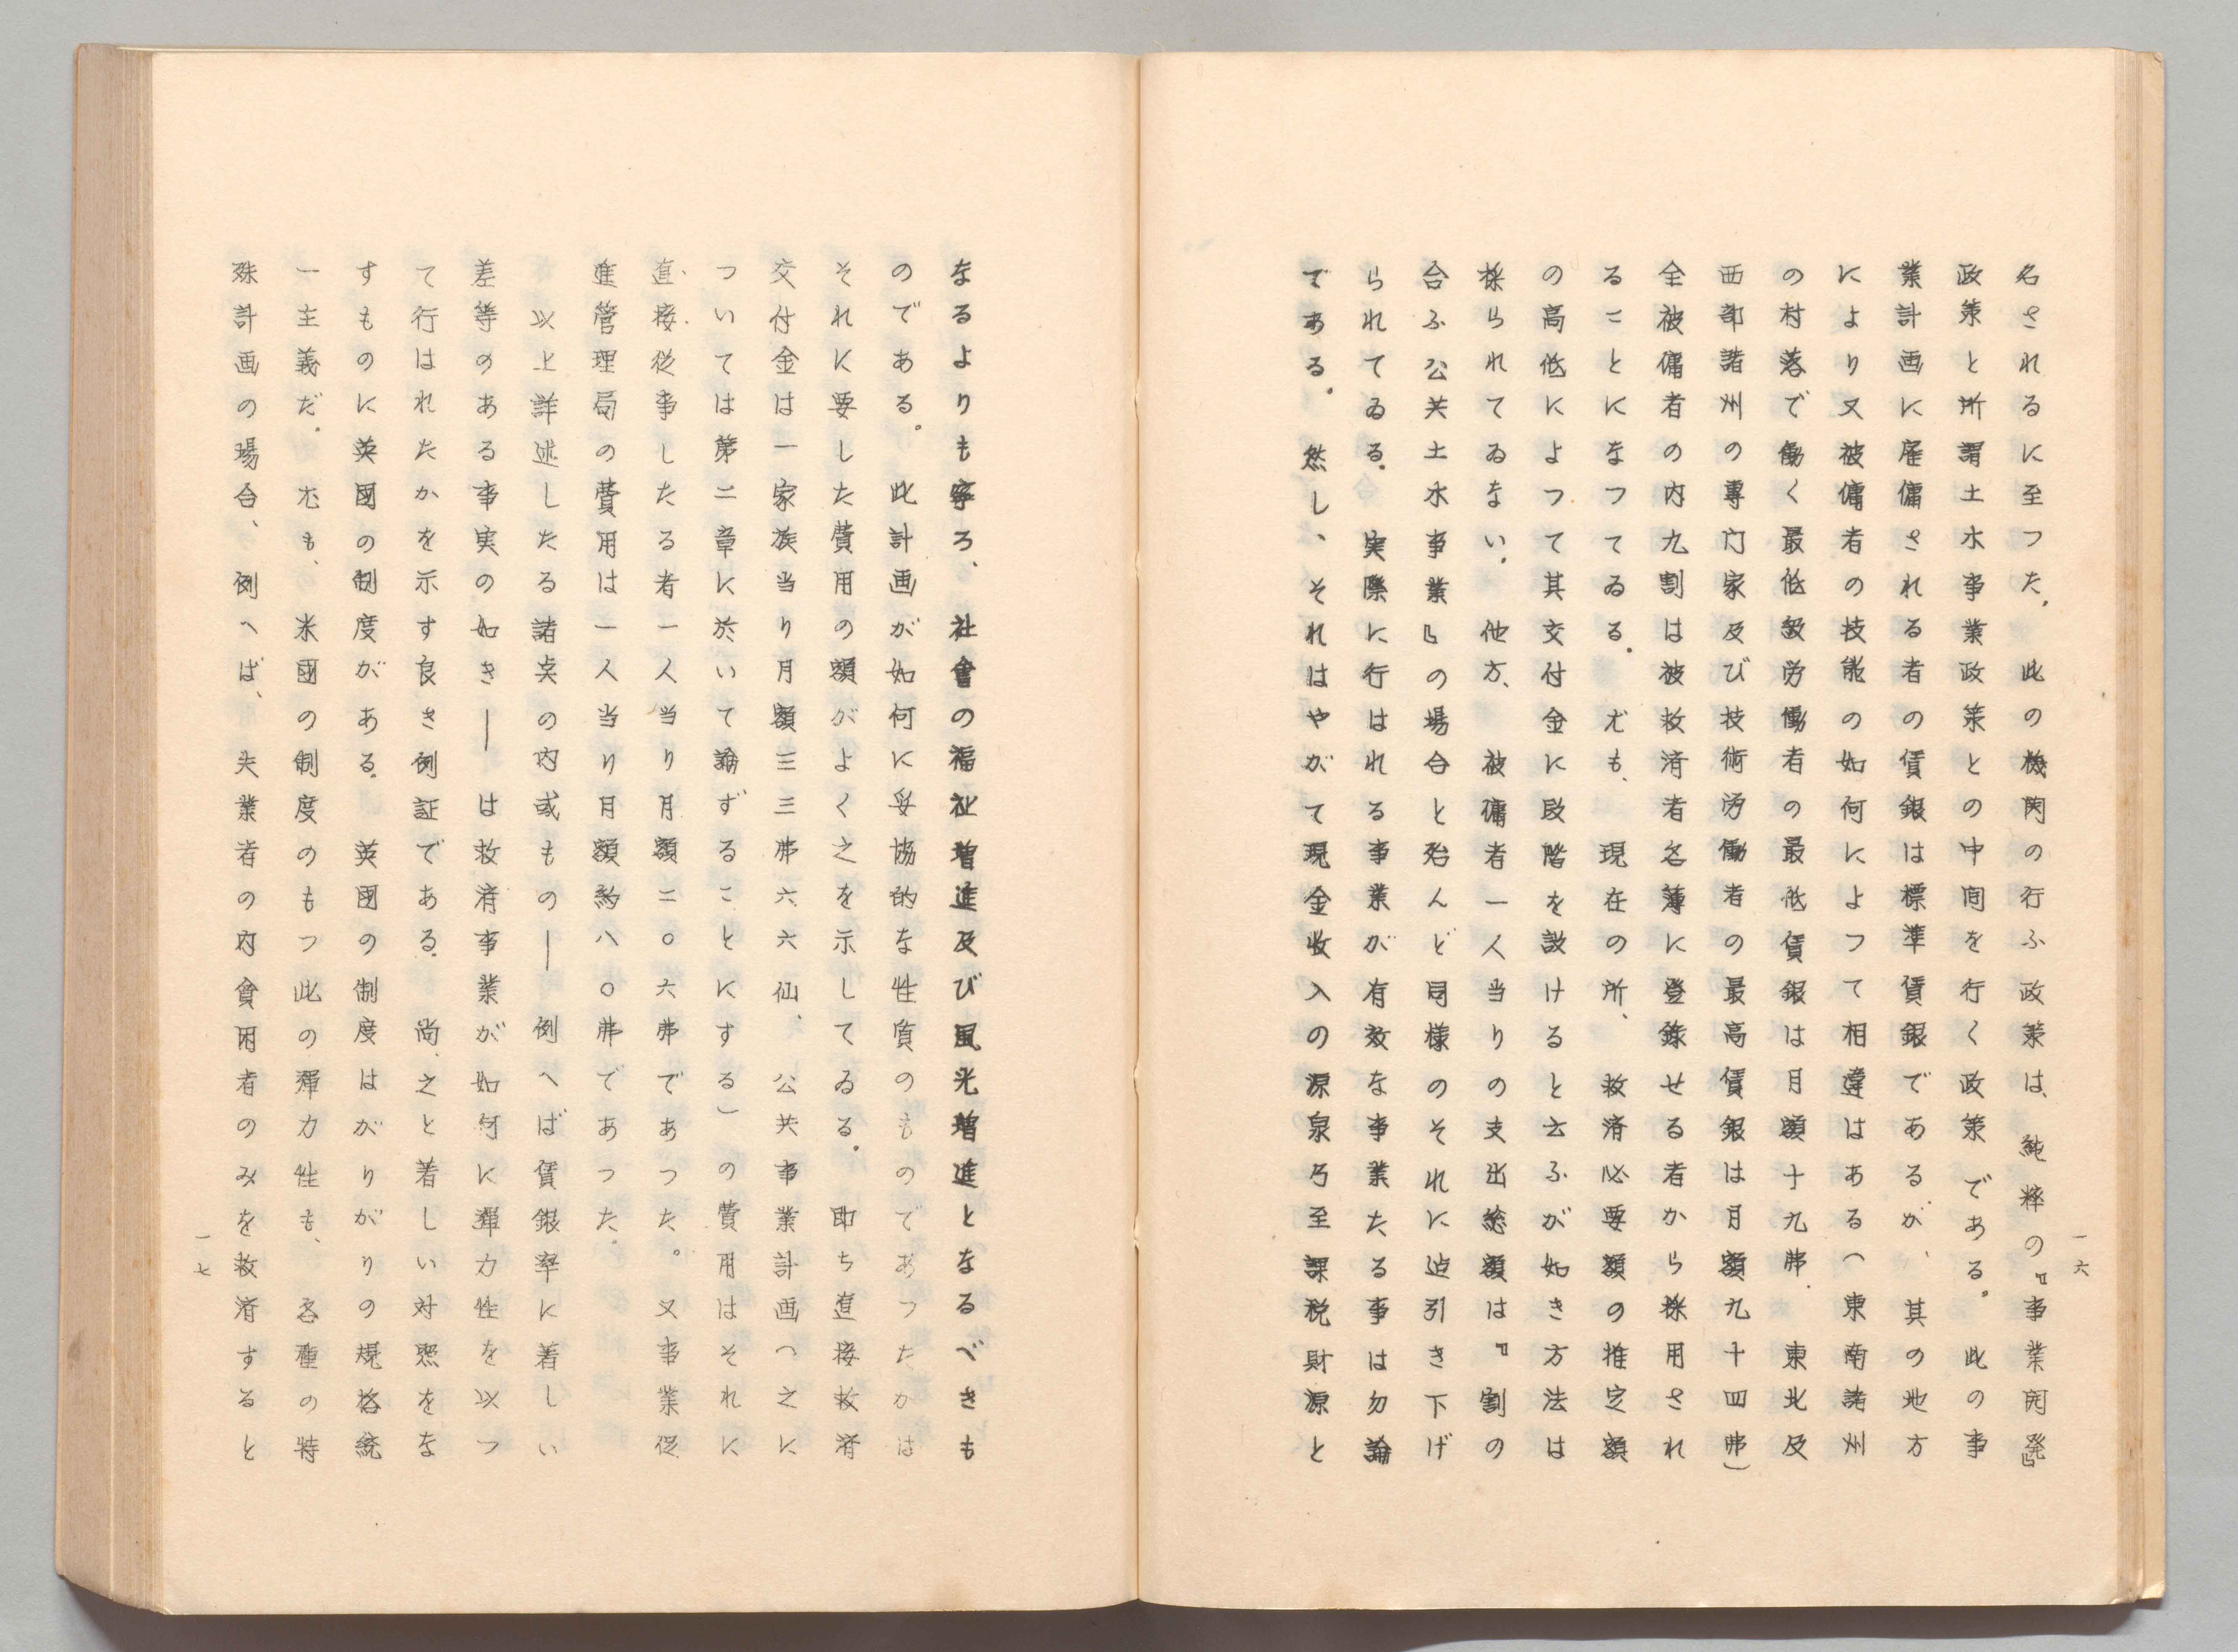 一六
名されるに至つた。此の機関の行ふ政策は、純粋の『事業開発』
政策と所謂土木事業政策との中間を行く政策である。此の事
業計画に雇傭される者の賃銀は標準賃銀であるが、其の地方
により又被傭者の技能の如何によつて相違はある(東南諸州
の村落で働く最低級労働者の最低賃銀は月額十九弗、東北及
西部諸州の専門家及び技術労働者の最高賃銀は月額九十四弗)
全被傭者の内九割は被救済者名簿に登録せる者から採用され
ることになつてゐる。尤も、現在の所、救済必要額の推定額
の高低によつて其交付金に段階を設けると云ふが如き方法は
採られてゐない。他方、被傭者一人当りの支出総額は『割の
合ふ公共土木事業』の場合と殆んど同様のそれに迄引き下げ
られてゐる。実際に行はれる事業が有効な事業たる事は勿論
である。然し、それはやがて現金収入の源泉乃至課税財源と
なるよりも寧ろ、社會の福祉増進及び風光増進となるべきも
のである。此計画が如何に妥協的な性質のものであつたかは
それに要した費用の額がよく之を示してゐる。即ち直接救済
交付金は一家族当り月額三三弗六六仙、公共事業計画(之に
ついては第二章に於いて論ずることにする)の費用はそれに
直接従事したる者一人当り月額二〇六弗であつた。又事業促
進管理局の費用は一人当り月額約八〇弗であつた。
以上詳述したる諸点の内或もの―例へば賃銀率に著しい
差等のある事実の如き―は救済事業が如何に弾力性を以つ
て行はれたかを示す良き例証である。尚、之と著しい対照をな
すものに英国の制度がある。英国の制度はがりがりの規格統
一主義だ。尤も、米國の制度のもつ此の弾力性も、各種の特
殊計画の場合、例へば、失業者の内貧困者のみを救済すると
一七